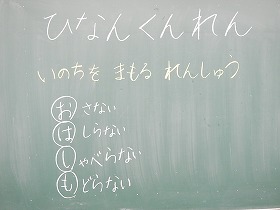 ひなんくんれん
いのちを まもる れんしゅう
おさない
はしらない
しゃべらない
もどらない